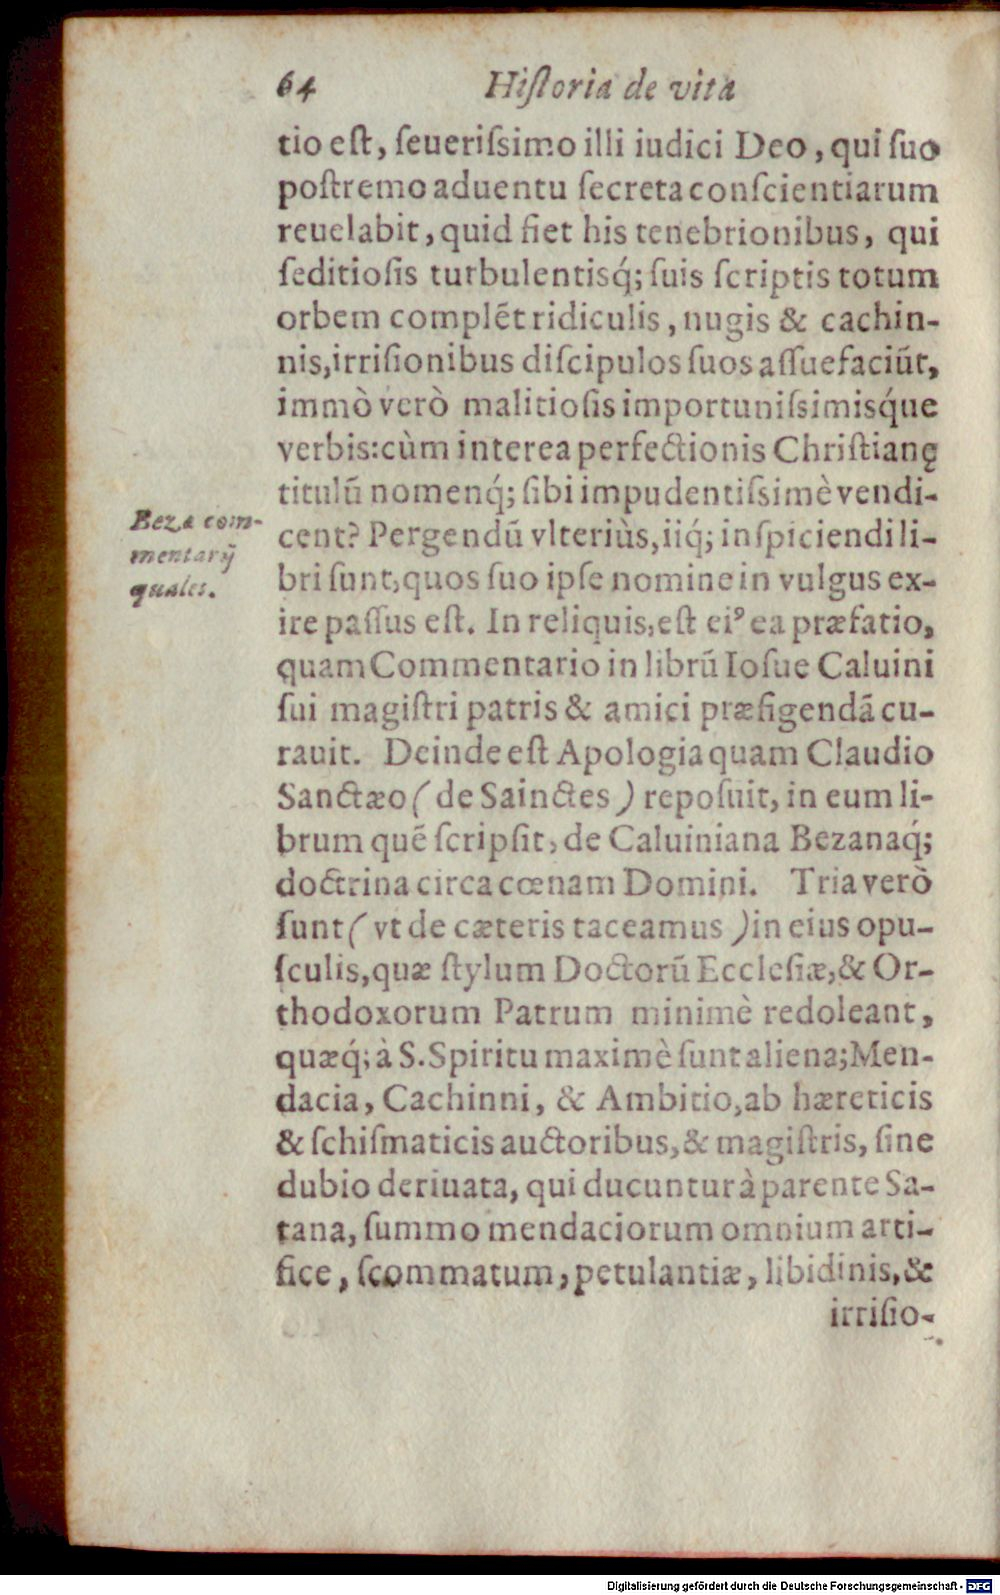 64 Hiſtoria de vita
tio eſt, ſeueriſsimo illi iudici Deo, qui ſuo
poſtremo aduentu ſecreta conſcientiarum
reuelabit, quid fiet his tenebrionibus, qui
ſeditioſis turbulentisq́; ſuis ſcriptis totum
orbem complẽt ridiculis, nugis & cachin-
nis, irriſionibus diſcipulos ſuos aſſuefaciũt,
immò verò malitioſis importuniſsimisq́ue
verbis: cùm interea perfectionis Chriſtianę
titulũ nomenq́; ſibi impudentiſsimè vendi-
cent? Pergendũ vlteriùs, iiq́; inſpiciendi li-
bri ſunt, quos ſuo ipſe nomine in vulgus ex-
ire paſſus eſt. In reliquis, eſt eiꝰ ea præfatio,
quam Commentario in librũ Ioſue Caluini
ſui magiſtri patris & amici præfigendã cu-
rauit. Deinde eſt Apologia quam Claudio
Sanctæo ( de Sainctes ) repoſuit, in eum li-
brum quẽ ſcripſit, de Caluiniana Bezanaq́;
doctrina circa cœnam Domini. Tria verò
ſunt ( vt de cæteris taceamus ) in eius opu-
ſculis, quæ ſtylum Doctorũ Eccleſiæ, & Or-
thodoxorum Patrum minimè redoleant,
quæq́; à S. Spiritu maximè ſunt aliena; Men-
dacia, Cachinni, & Ambitio, ab hæreticis
& ſchiſmaticis auctoribus, & magiſtris, ſine
dubio deriuata, qui ducuntur à parente Sa-
tana, ſummo mendaciorum omnium arti-
fice, ſcommatum, petulantiæ, libidinis, &
irriſio-
Bezæ com-
mentarij
quales.
Digitalisierung gefördert durch die Deutsche Forschungsgemeinschaft - DFG